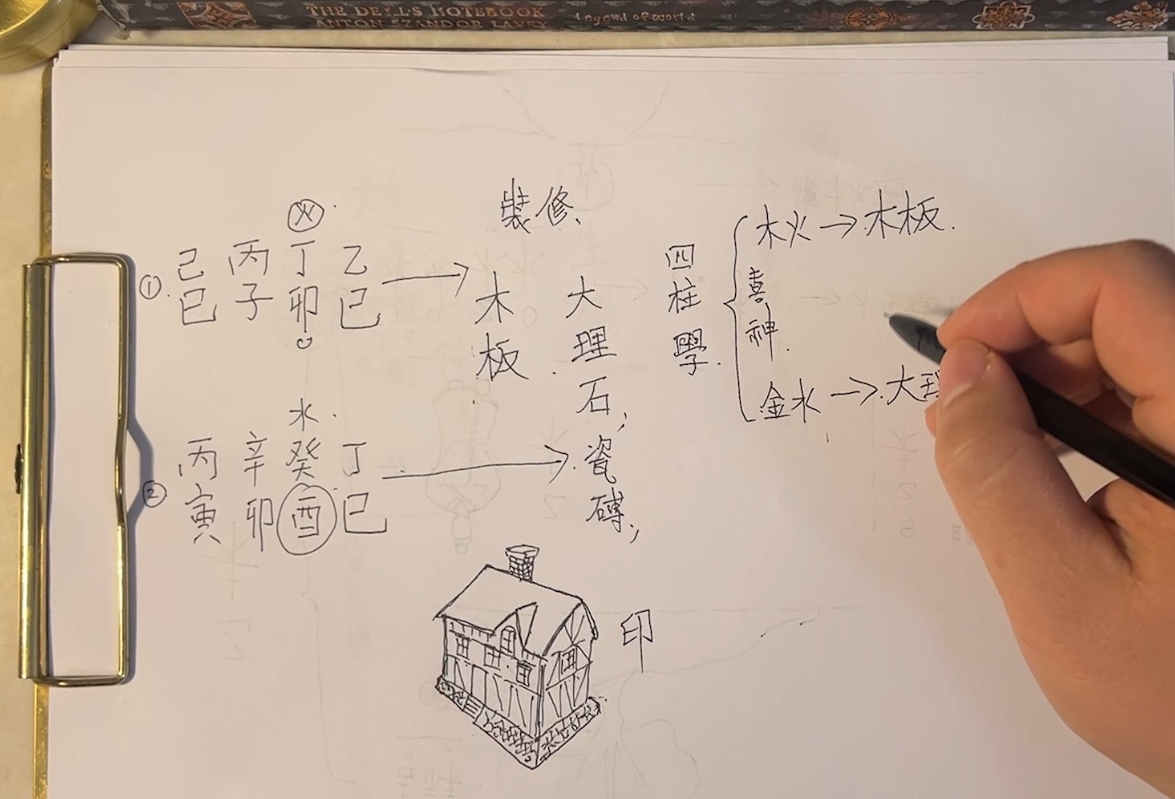 THE DEVIL'S NOTEBOOK
ANTON SZANDOR LAVEY
Legend of world
裝修
火
① 己 丙 丁 乙
巳 子 卯 巳
木板
大理石,
瓷磚,
水
② 丙 辛 癸 丁
寅 卯 酉 巳
四柱學
木火→木板
喜神
金水→大理
印